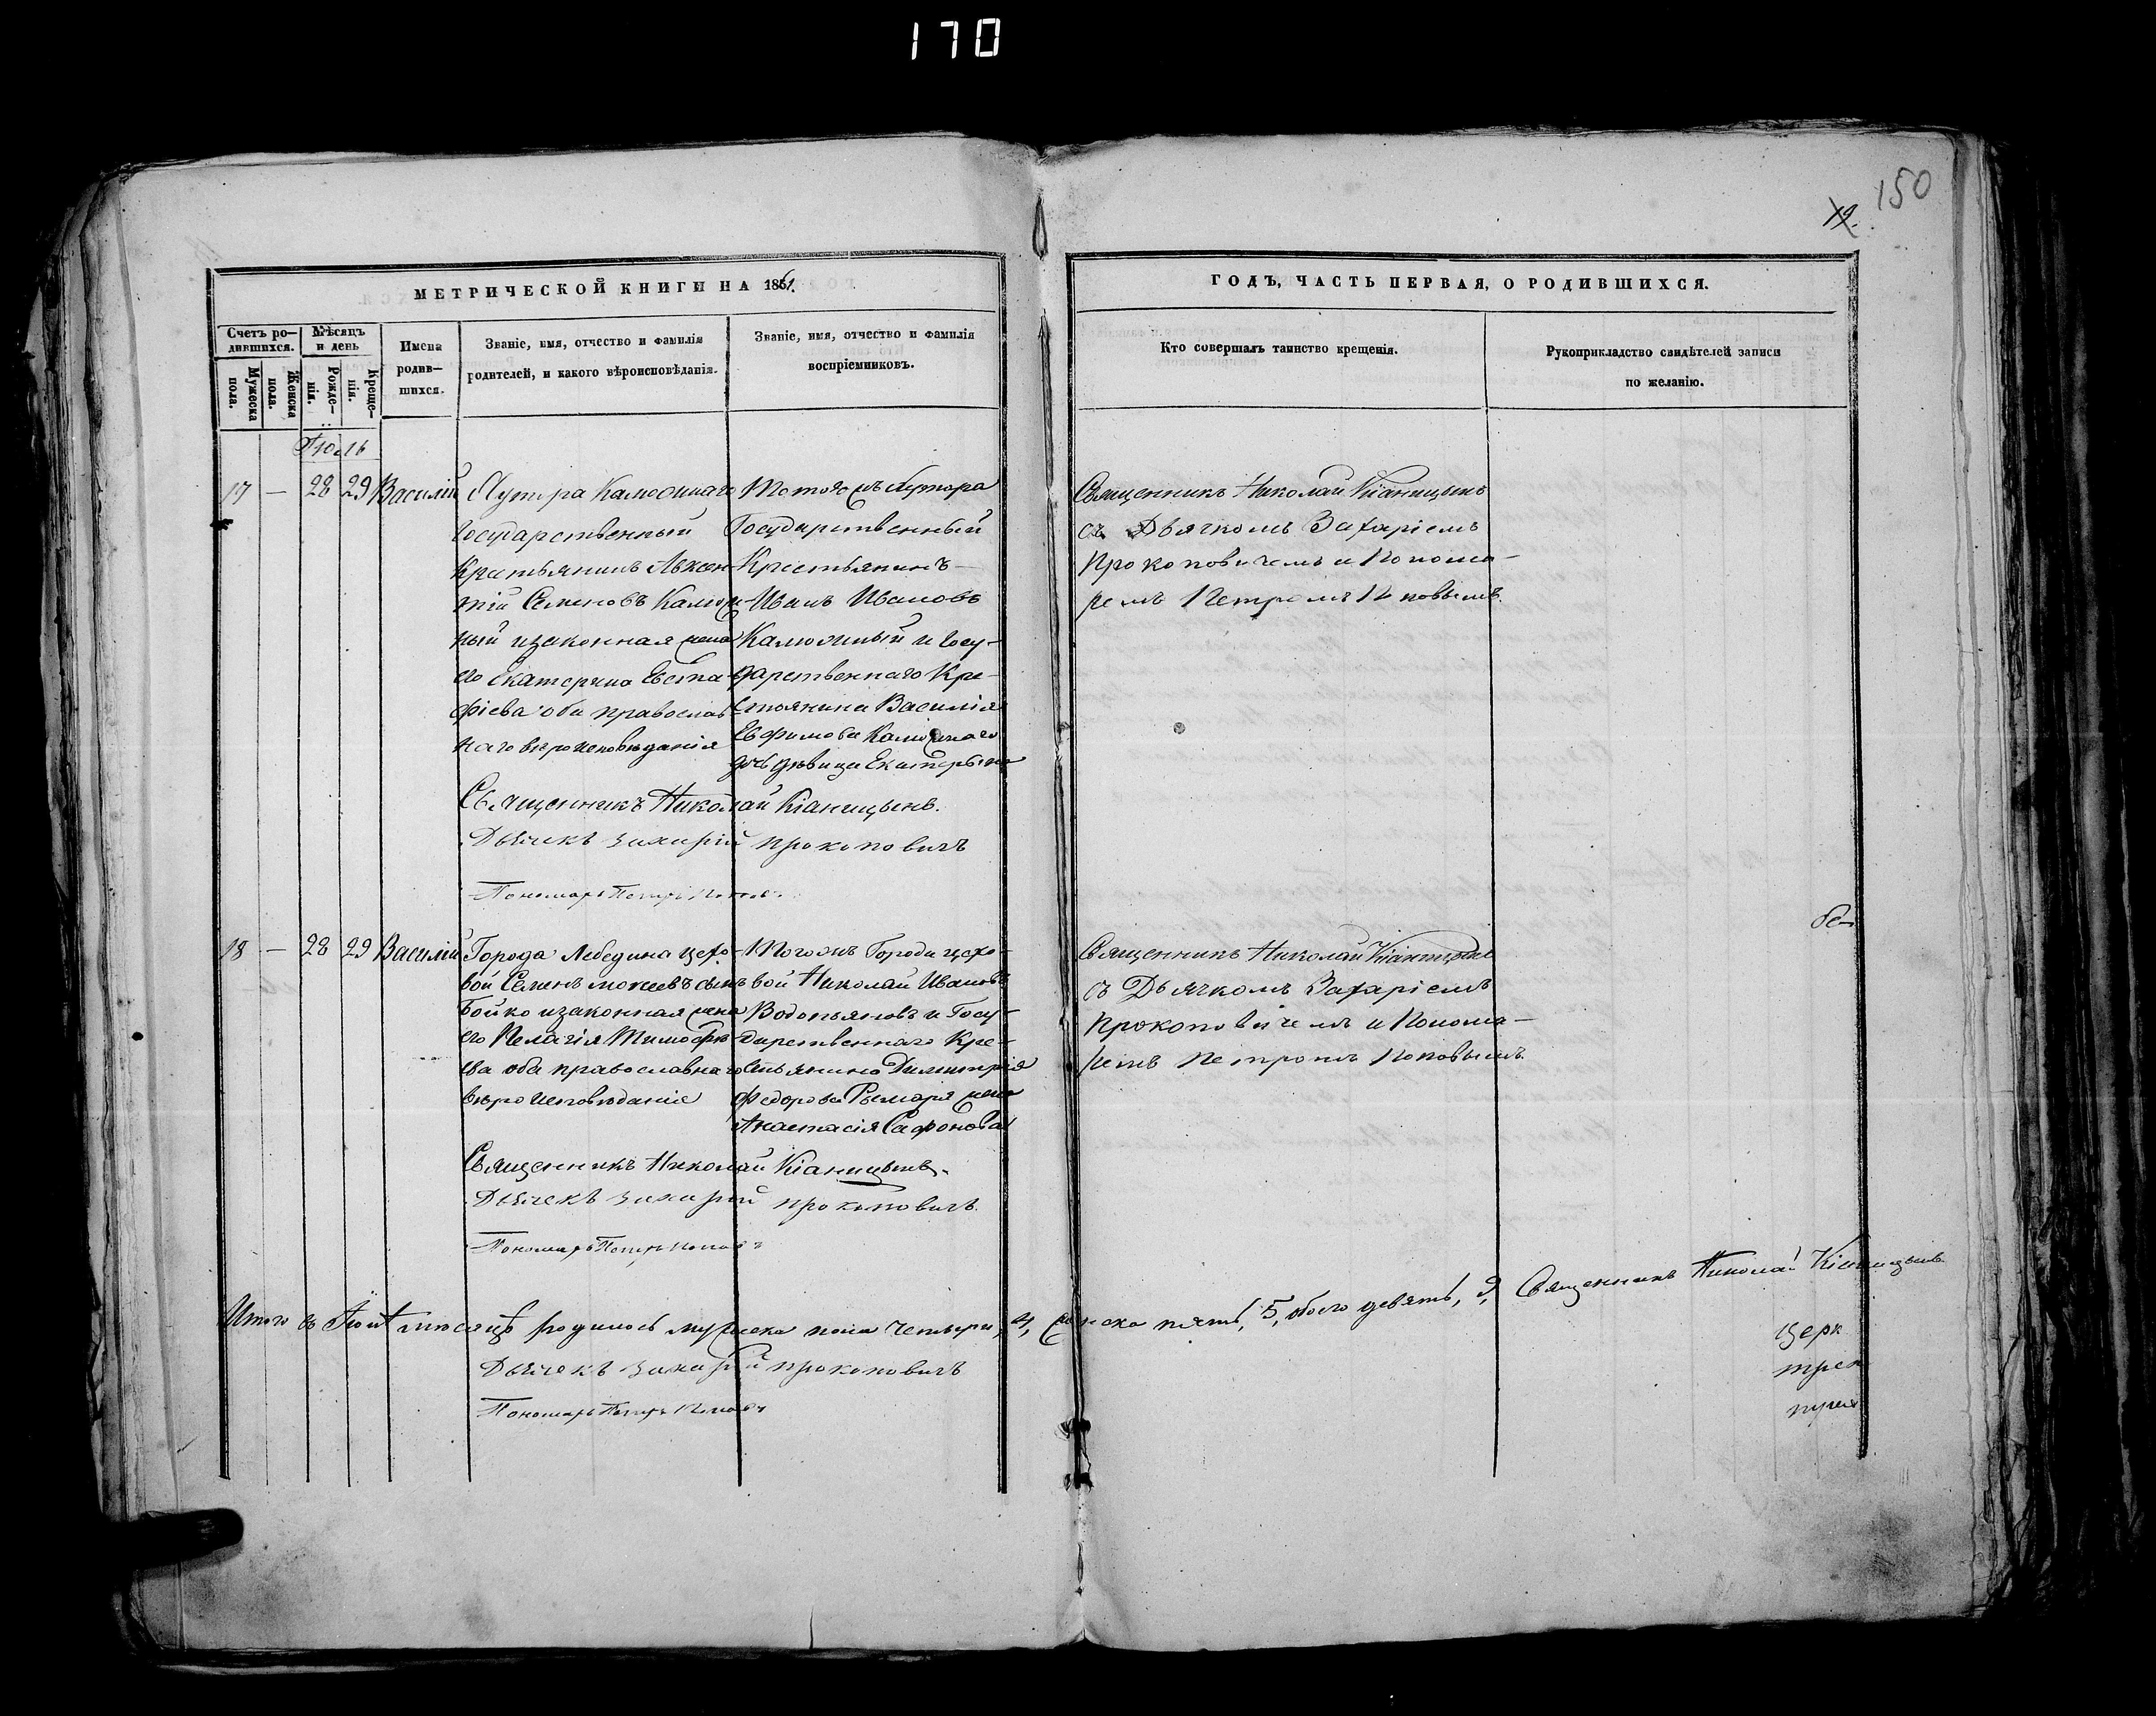 170
150
12.
МЕТРИЧЕСКОЙ КНИГИ НА 1861.
ГОДЪ, ЧАСТЬ ПЕРВАЯ, О РОДИВШИХСЯ.
Счетъ ро-
дившихся.
Мужеска
пола.
Женска
пола.
Мѣсяцъ
и день
Рожде-
нія.
Креще-
нія.
Имена
родив-
шихся.
Званіе, имя, отчество и фамилія
родителей, и какого вѣроисповѣданія.
Званіе, имя, отчество и фамилія
воспріемниковъ.
Кто совершалъ таинство крещенія.
Рукоприкладство свидѣтелей записи
по желанію.
Іюль
17 — 28 29 Василій
Хутора Калюжнаго
государственный
Крестьянинъ Авксен-
тій Семеновъ Калюж-
ный и законная жена
его Екатерина Евста-
фіева оба православ
наго вѣроисповѣданія
Тогожъ Хутора
Государственный
Крестьянинъ
Иванъ Ивановъ
Калюжный и Госу-
дарственнаго Кре-
стьянина Василія
Ефимова Калюжнаго
дочь дѣвица Екатерына
Священникъ Николай Кіаницынъ
съ Дьячкомъ Захаріемъ
Прокоповичемъ и Понома-
ремъ Петромъ Поповымъ.
Священникъ Николай Кіаницынъ.
Дьячекъ Захарій Прокоповичъ
Пономарь Петръ Поповъ.
18 — 28 29 Василій
Города Лебедина цехо-
вой Семенъ Мокеевъ сынъ
Бойко и законная жена
его Пелагія Тимофѣ-
ева оба православнаго
вѣроисповѣданіе
Тогожъ Города цехо-
вой Николай Ивановъ
Водопьяновъ и Госу-
дарственнаго Кре-
стьянина Димитрія
Федорова Рымаря жена
Анастасія Сафонова
Священникъ Николай Кіаницынъ
съ Дьячкомъ Захаріемъ
Прокоповичемъ и Понома-
ремъ Петромъ Поповымъ.
Священникъ Николай Кіаницынъ.
Дьячекъ Захарій Прокоповичъ.
Пономарь Петръ Поповъ
Итого въ Іюлѣ мѣсяцѣ родилось мужеска пола четыре, 4, женска пять, 5, обоего девять, 9, Священникъ Николай Кіаницынъ
Дьячекъ Захарій Прокоповичъ
Пономарь Петръ Поповъ
церк